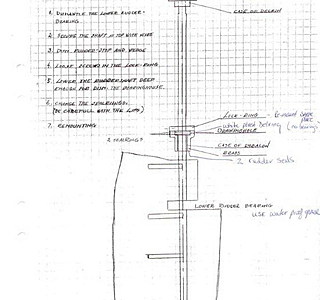 1. DISMANTLE THE LOWER RUDDER-
BEARING.
CASE OF DELRIN
2. SECURE THE SHAFT ON TOP WITH WIRE
3. DISM. RUDDER-STOP AND WEDGE
4. LOOSE SCREWS IN THE LOCK-RING
5. LOWER THE RUDDER-SHAFT DEEP
ENOUGH FOR DISM. THE BEARINGHOUSE.
6. CHANGE THE SEALRINGS.
(BE CAREFULL WITH THE LIPS)
7. REMOUNTING
LOCK-RING
white plast bearing (no bearing)
BEARINGHOUSE
2 SEALRINGS
CASE OF
2 rudder seals
LOWER RUDDER BEARING
use water proof grease